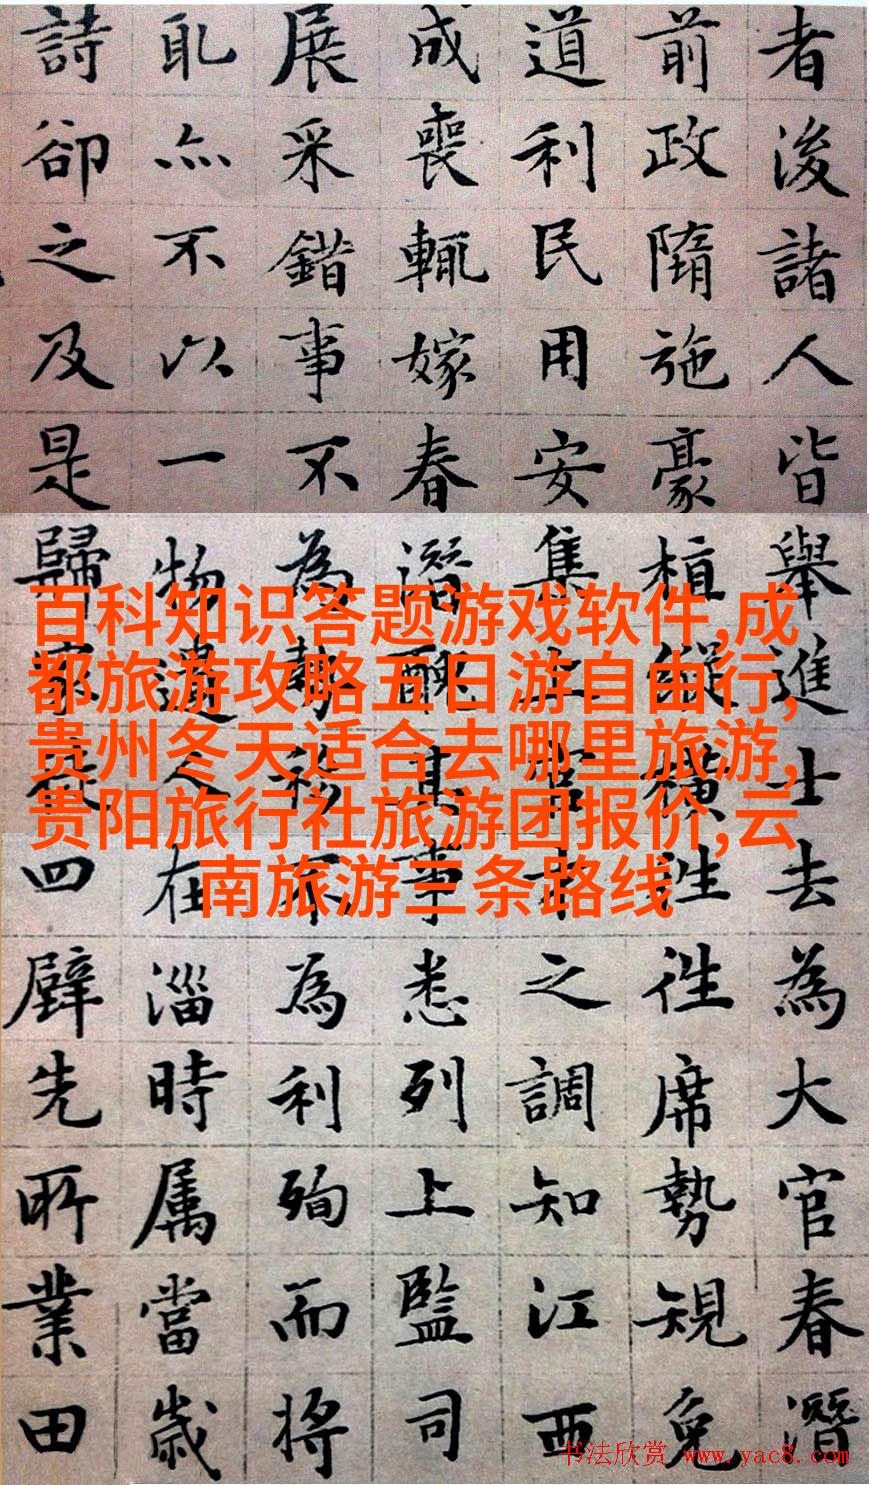 者後諸人皆舉進士去為大官春潛
前政隋施豪植縱橫徃徃席勢規免
道利民用安集上官才之調知江西
成喪輒嫁春潛醜其事悉列上監司
展采錯事不為勢移不為利殉而將
耴亦不以一物遺人在淄時属當歲
詩卻之及是歸家徒四壁先所業田
百科知识答题游戏软件,成
都旅游攻略五日游自由行,
贵州冬天适合去哪里旅游,
贵阳旅行社旅游团报价,云
南旅游三条路线
书法欣赏 www.yac8.com